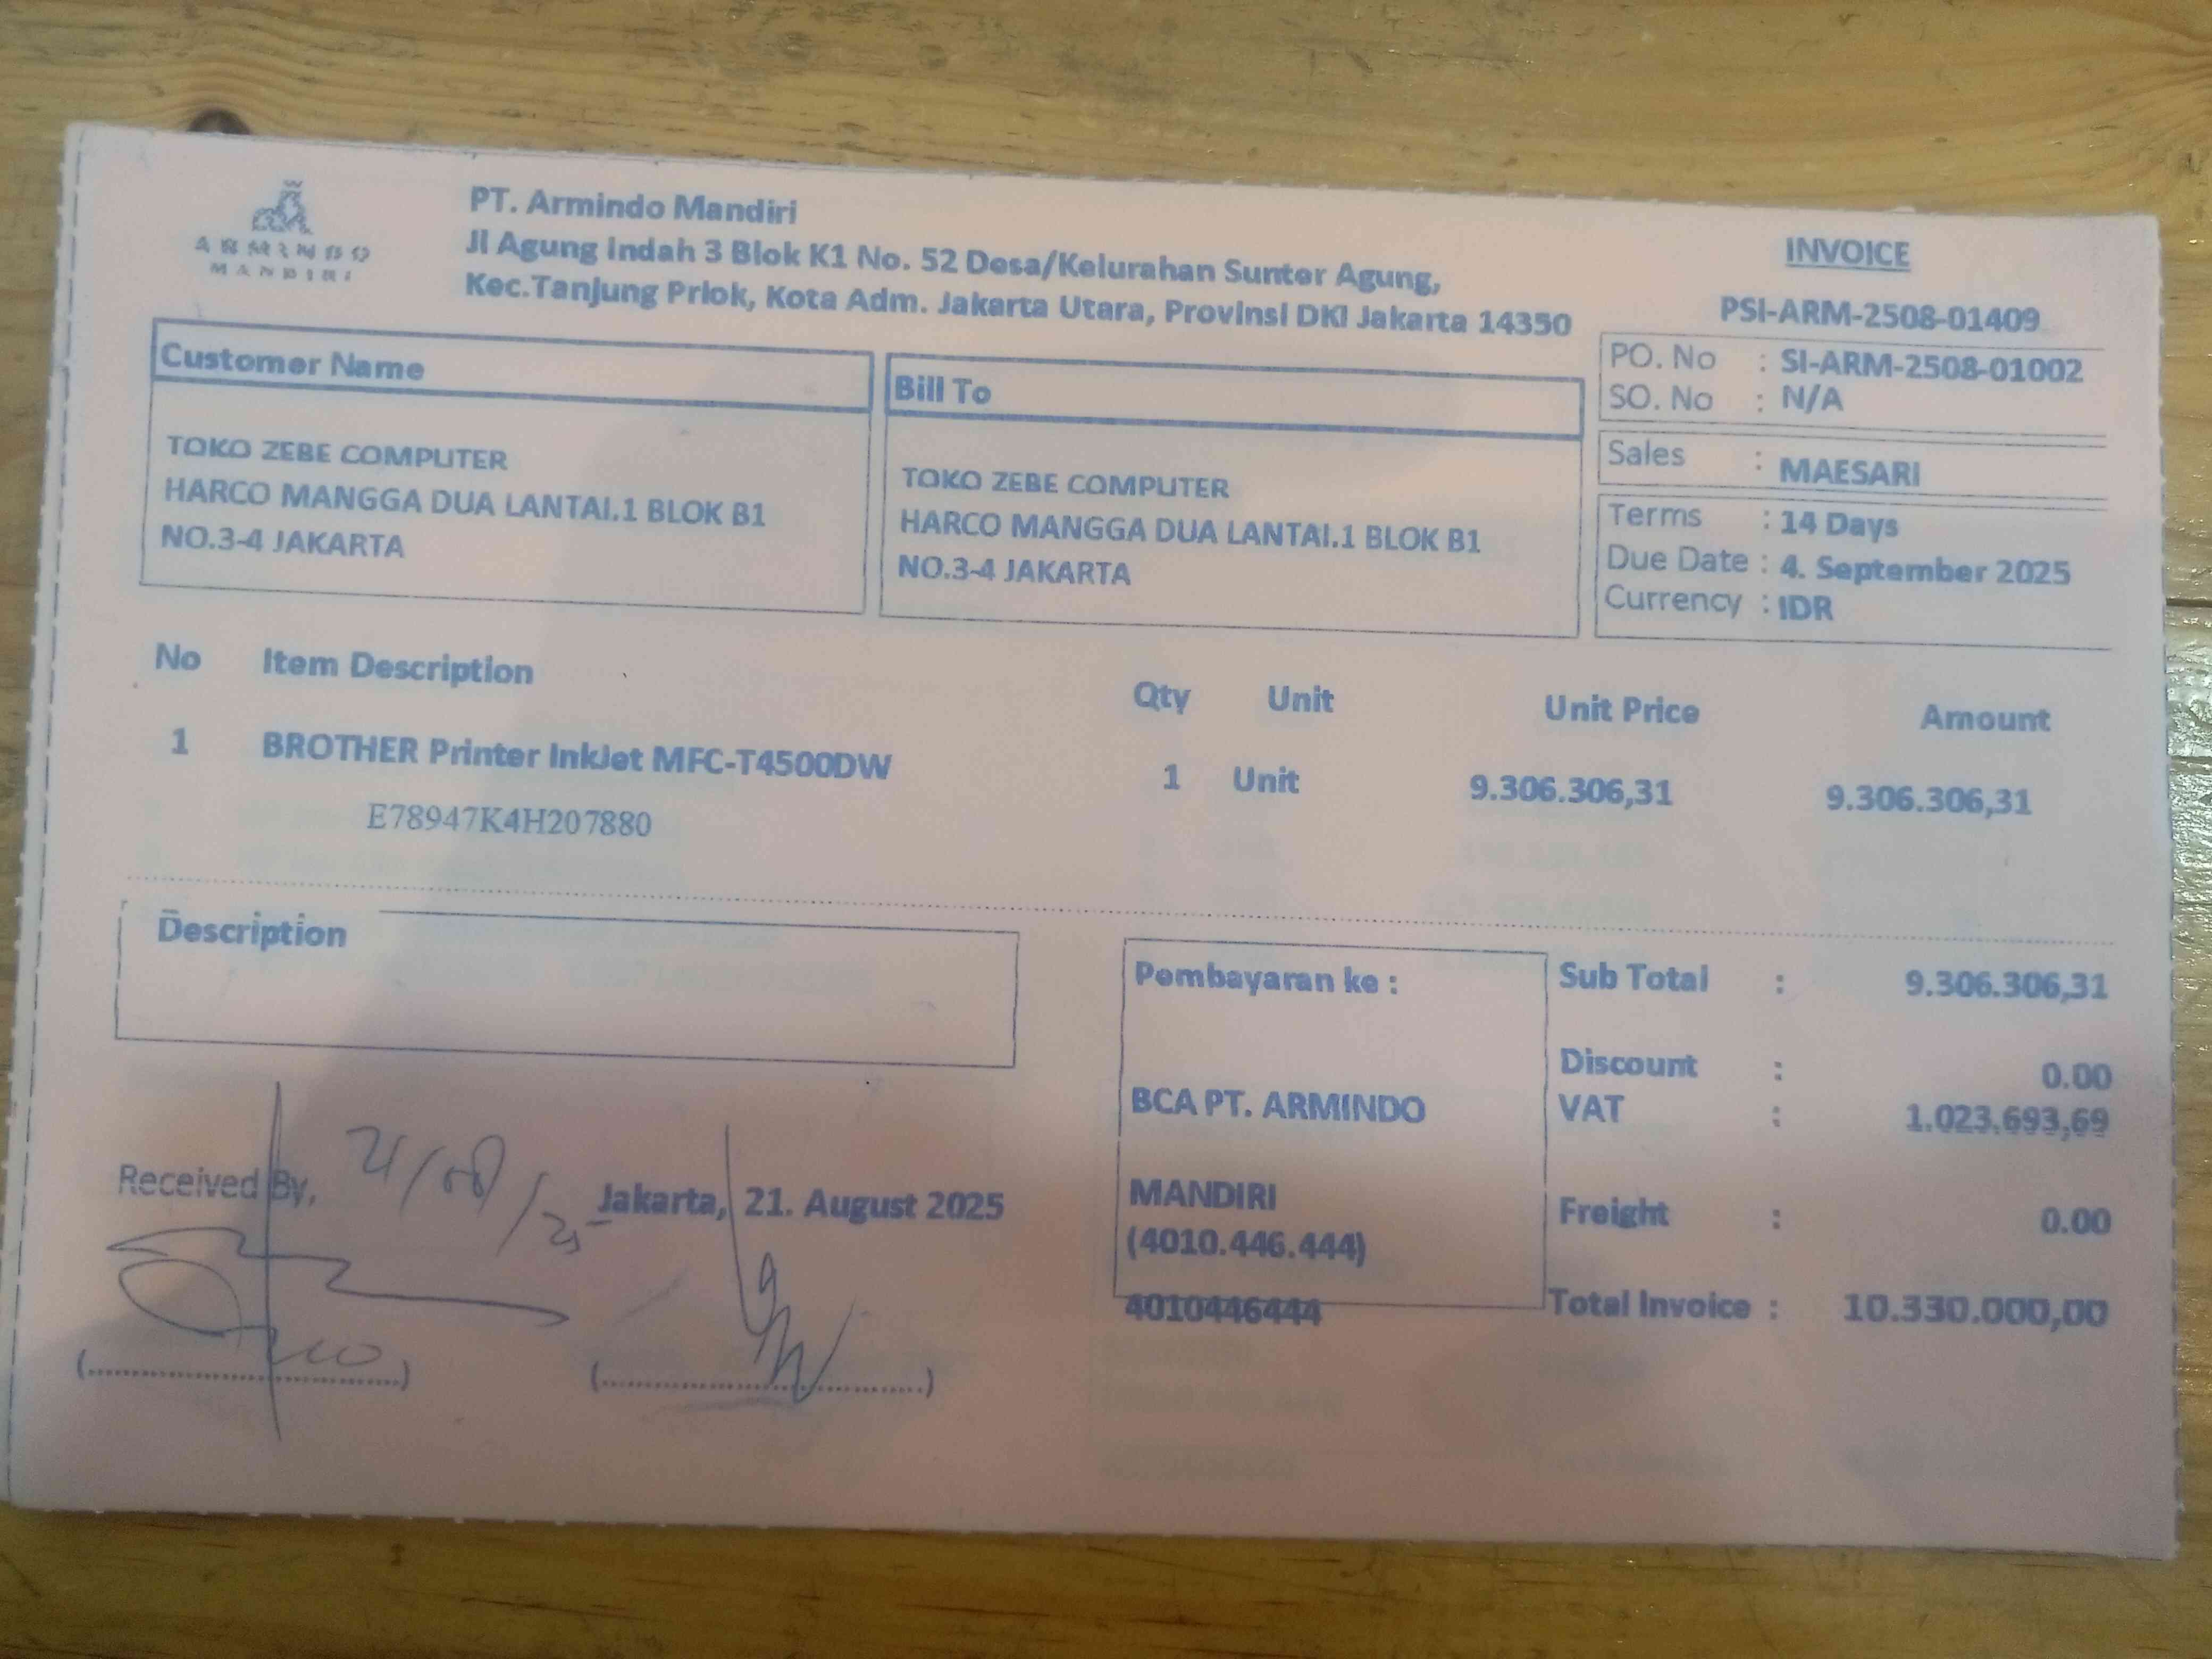 ARMINDO
MANDIRI
PT. Armindo Mandiri
Jl Agung Indah 3 Blok K1 No. 52 Desa/Kelurahan Sunter Agung,
Kec.Tanjung Priok, Kota Adm. Jakarta Utara, Provinsi DKI Jakarta 14350
INVOICE
PSI-ARM-2508-01409
PO. No : SI-ARM-2508-01002
SO. No : N/A
Sales : MAESARI
Terms : 14 Days
Due Date : 4. September 2025
Currency : IDR
Customer Name
TOKO ZEBE COMPUTER
HARCO MANGGA DUA LANTAI.1 BLOK B1
NO.3-4 JAKARTA
Bill To
TOKO ZEBE COMPUTER
HARCO MANGGA DUA LANTAI.1 BLOK B1
NO.3-4 JAKARTA
No Item Description Qty Unit Unit Price Amount
1 BROTHER Printer InkJet MFC-T4500DW 1 Unit 9.306.306,31 9.306.306,31
E78947K4H207880
Description
Pembayaran ke :
BCA PT. ARMINDO
MANDIRI
(4010.446.444)
4010446444
Sub Total : 9.306.306,31
Discount : 0.00
VAT : 1.023.693,69
Freight : 0.00
Total Invoice : 10.330.000,00
Received By,
Jakarta, 21. August 2025
(....................................) (....................................)